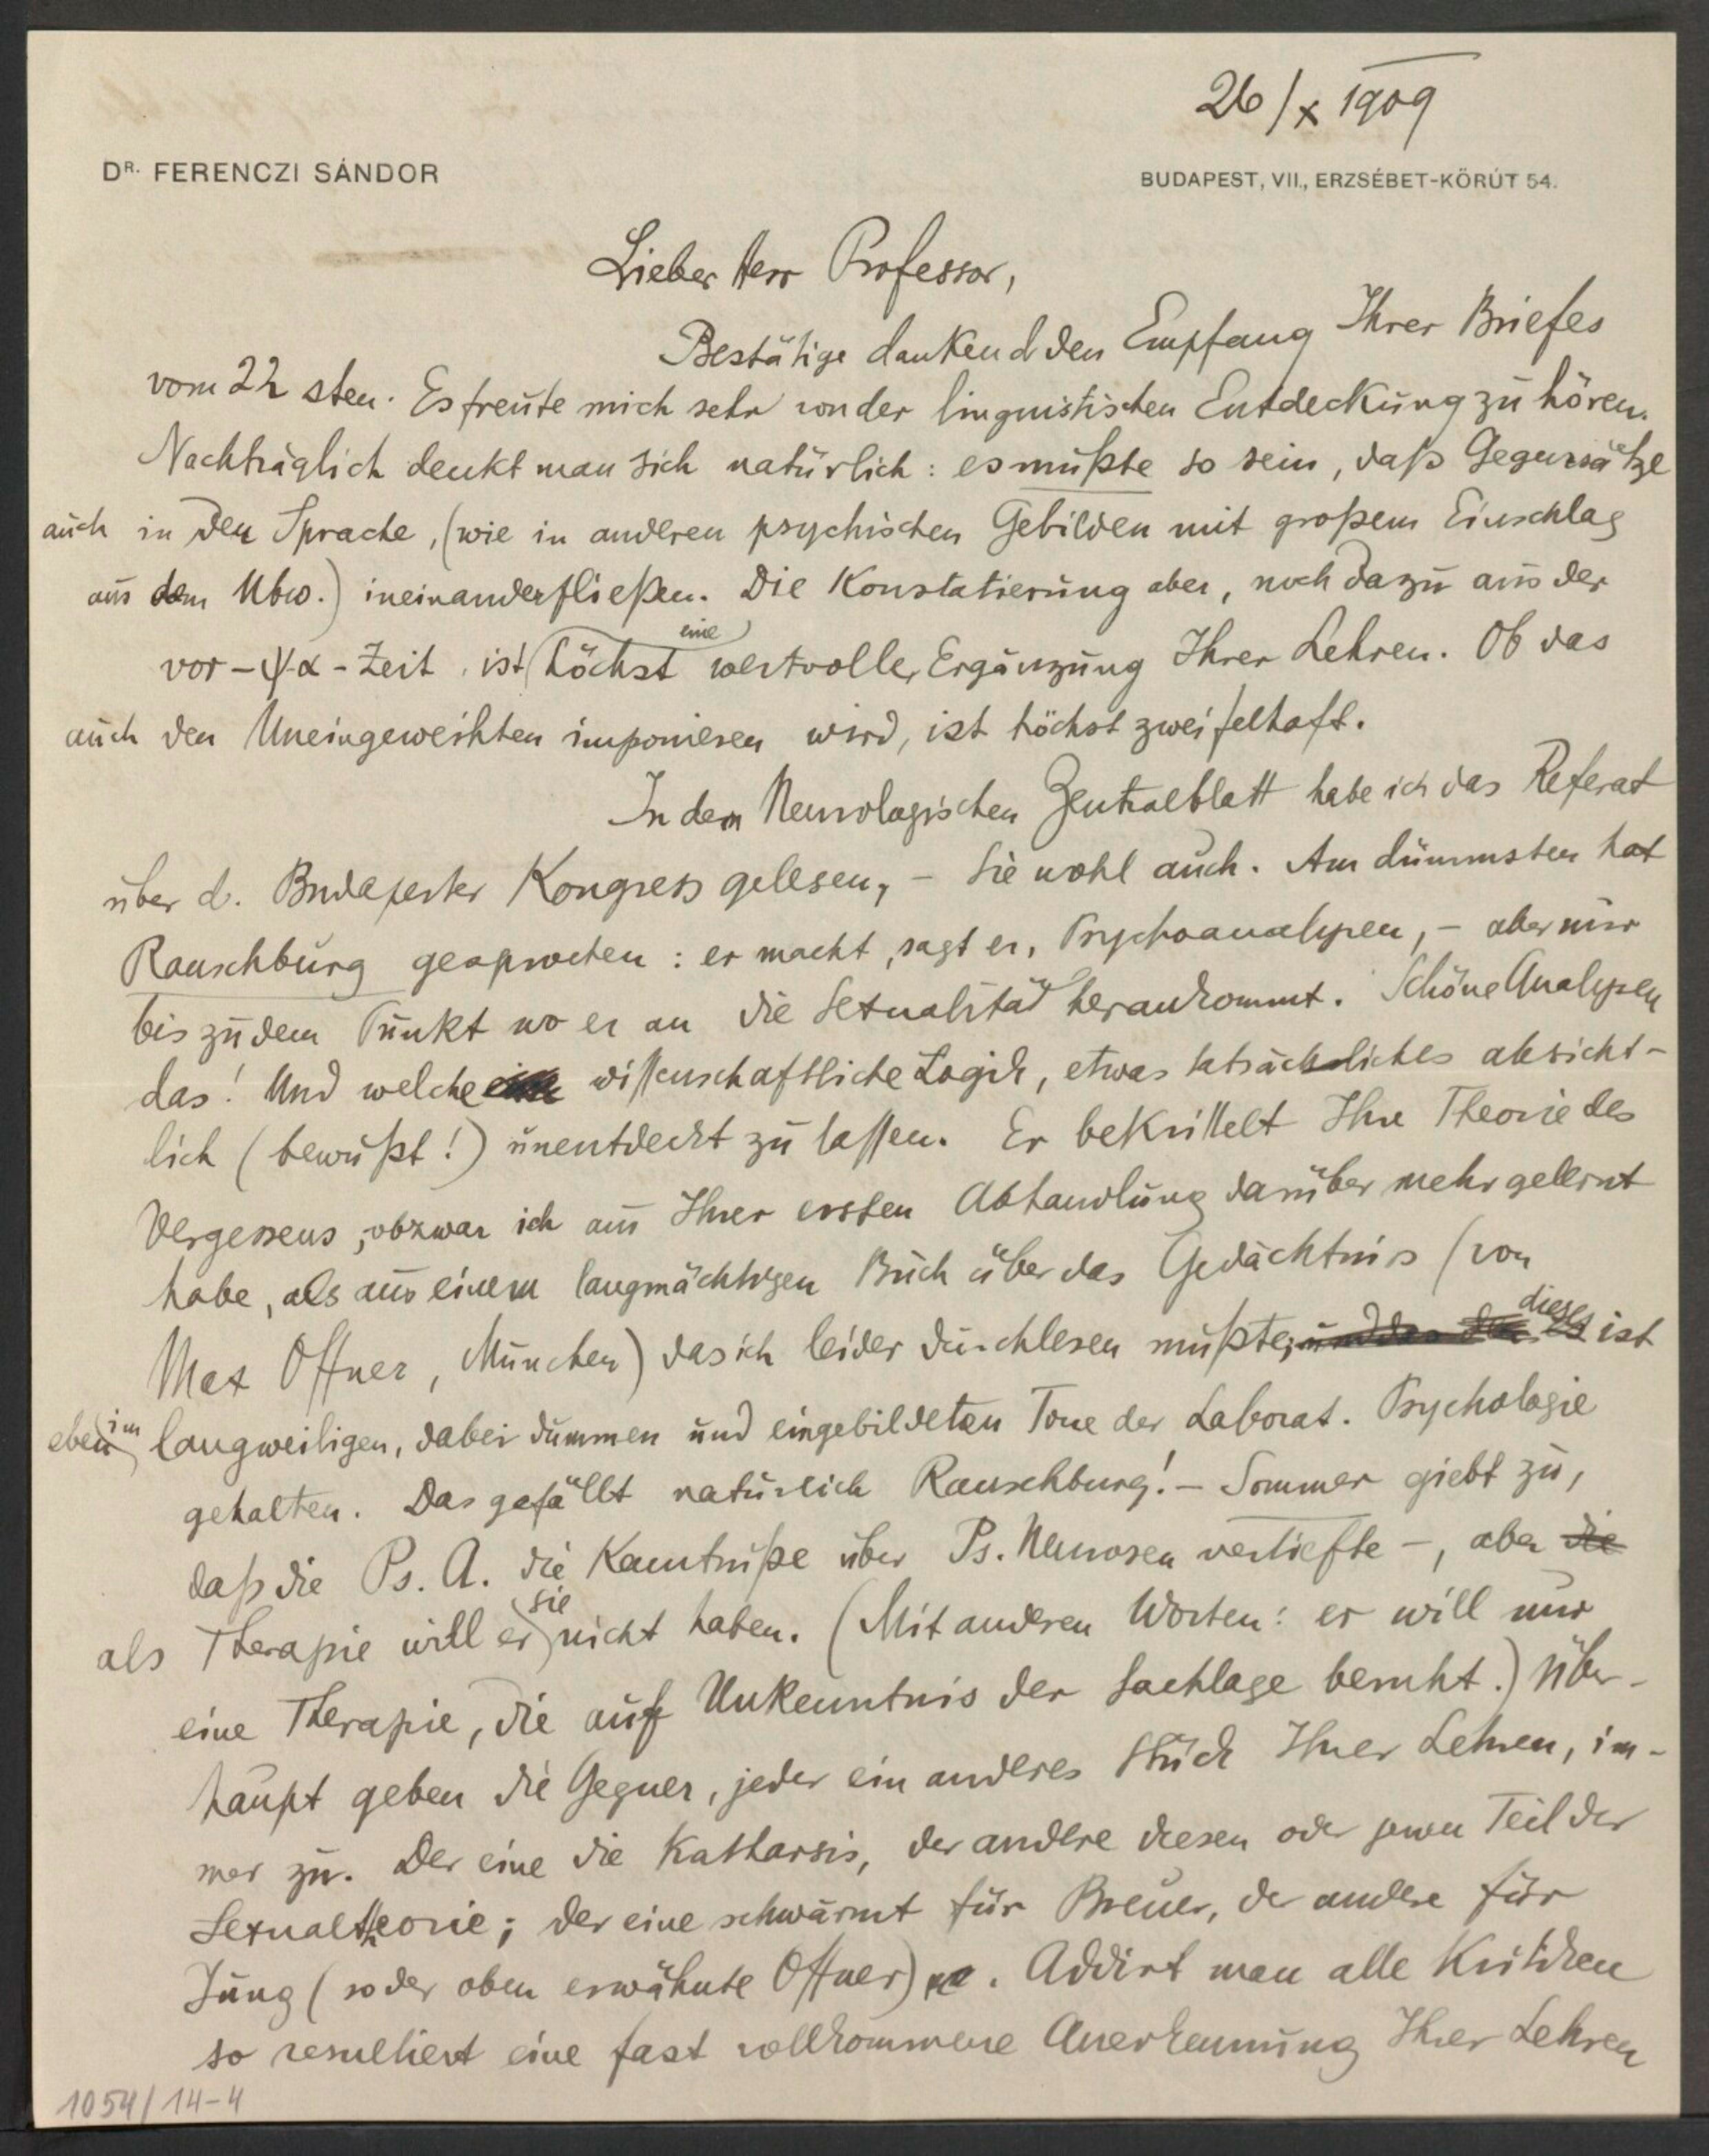 26/X 1909
DR. FERENCZI SÁNDOR
BUDAPEST, VII., ERZSÉBET-KÖRÚT 54.
Lieber Herr Professor,
Bestätige dankend den Empfang Ihrer Briefes
vom 22 sten. Es freute mich sehr von der linguistischen Entdeckung zu hören.
Nachträglich denkt man sich natürlich: es müßte so sein, daß Gegensätze
auch in der Sprache, (wie in anderen psychischen Gebilden mit großem Einschlag
aus dem Ubw.) ineinanderfließen. Die Konstatierung aber, noch dazu aus der
vor-ψα-Zeit, ist eine höchst wertvolle Ergänzung Ihrer Lehren. Ob das
auch den Uneingeweihten imponieren wird, ist höchst zweifelhaft.
In dem Neurologischen Zentralblatt habe ich das Referat
über d. Budapester Kongress gelesen, – Sie wohl auch. Am dümmsten hat
Ranschburg gesprochen: er macht, sagt er, Psychoanalysen, – aber nur
bis zu dem Punkt wo er an die Sexualität herankommt. Schöne Analysen
das! Und welche wissenschaftliche Logik, etwas tatsächliches absicht-
lich (bewußt!) unentdeckt zu lassen. Er bekrittelt Ihre Theorie des
Vergessens, obzwar ich aus Ihrer ersten Abhandlung darüber mehr gelernt
habe, als aus einem langmächtigen Buch über das Gedächtnis (von
Max Offner, München) das ich leider durchlesen mußte; dieses ist
eben im langweiligen, dabei dummen und eingebildeten Tone der Laborat. Psychologie
gehalten. Das gefällt natürlich Ranschburg! – Sommer giebt zu,
daß die Ps. A. die Kenntniße über Ps. Neurosen vertiefte –, aber die
als Therapie will er sie nicht haben. (Mit anderen Worten: er will nur
eine Therapie, die auf Unkenntnis der Sachlage beruht.) Über-
haupt geben die Gegner, jeder ein anderes Stück Ihrer Lehren, im-
mer zu. Der eine die Katharsis, der andere diesen oder jenen Teil der
Sexualtheorie; der eine schwärmt für Breuer, der andere für
Jung (so der oben erwähnte Offner). Addirt man alle Kritiken
so resultiert eine fast vollkommene Anerkennung Ihrer Lehren
1054/14-4